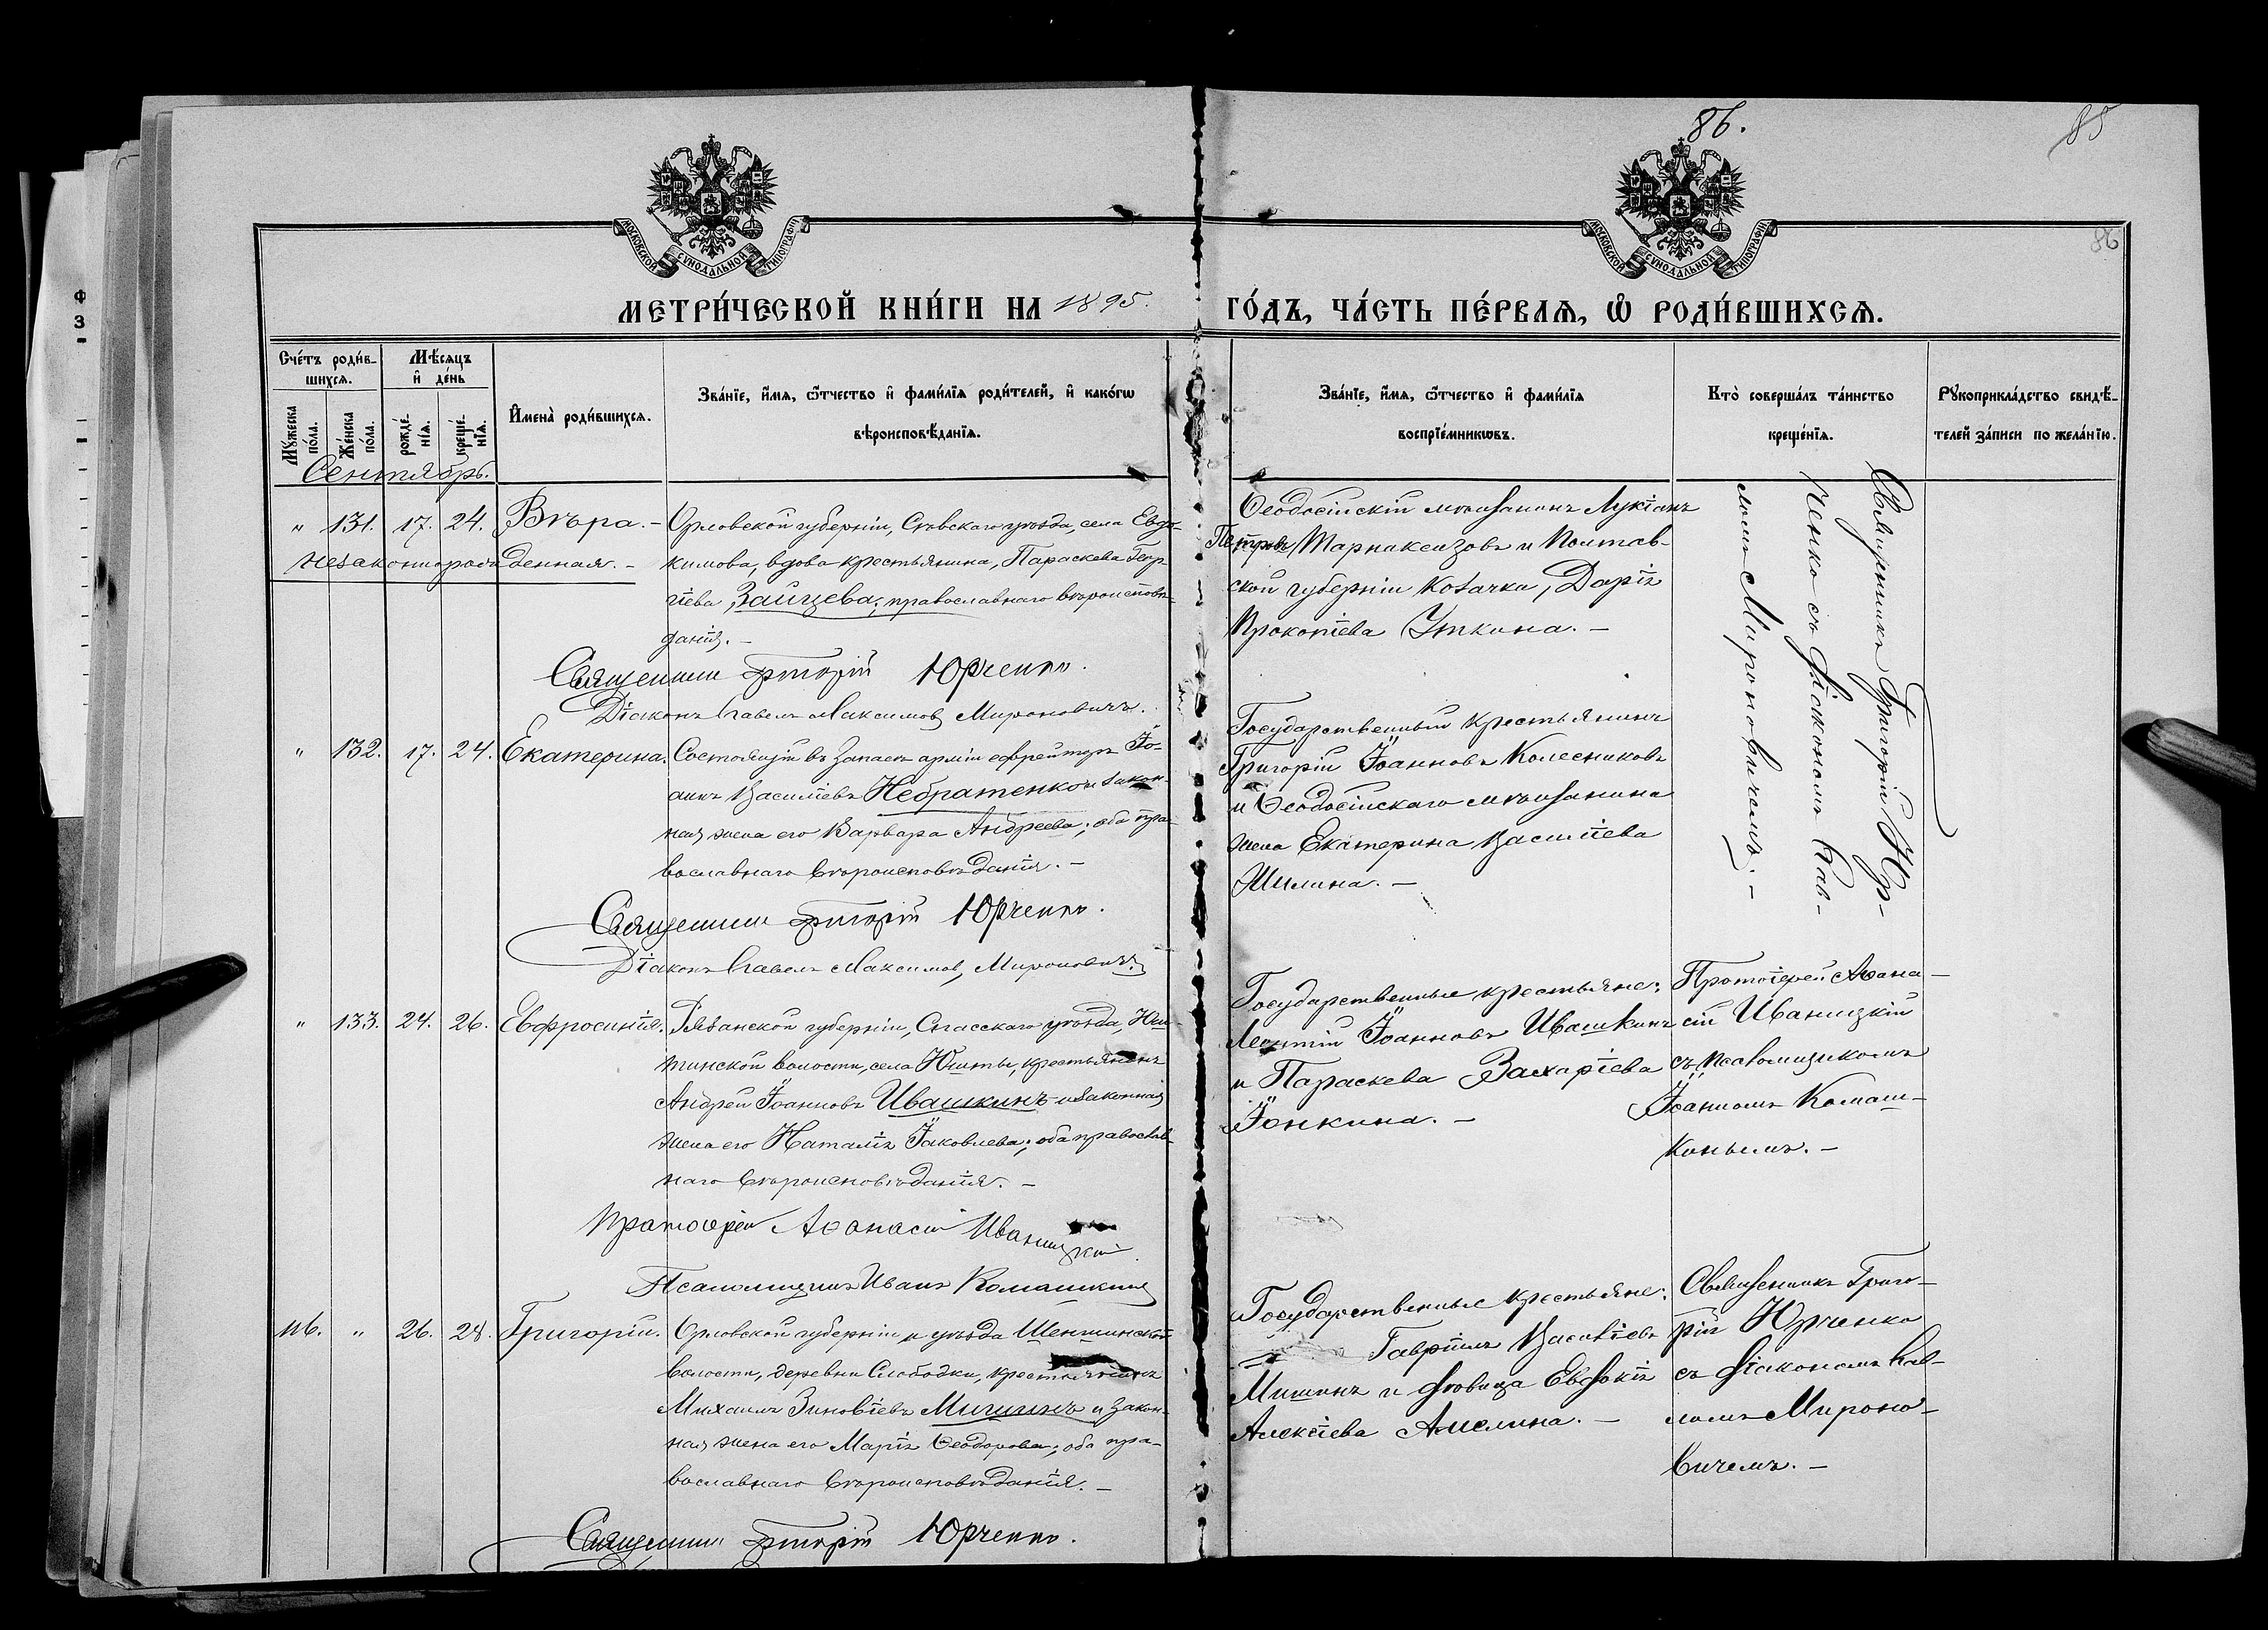 86.
85
86
МОСКОВСКОЙ СѴНОДАЛЬНОЙ ТИПОГРАФІИ
МОСКОВСКОЙ СѴНОДАЛЬНОЙ ТИПОГРАФІИ
МЕТРИ́ЧЕСКОЙ КНИ́ГИ НА 1895.
ГО́ДЪ, ЧА́СТЬ ПЕ́РВАѦ, Ѽ РОДИ́ВШИХСѦ.
Сче́тъ роди́в-
шихсѧ.
Мѣ́сѧцъ
и҆ де́нь
Мꙋ́жеска
по́ла.
Же́нска
по́ла.
рожде́-
нїѧ.
креще́-
нїѧ.
И҆мена̀ роди́вшихсѧ.
Зва́нїе, и҆́мѧ, ѻ҆́тчество и҆ фами́лїѧ роди́телей, и҆ како́гѡ
вѣроисповѣ́данїѧ.
Зва́нїе, и҆́мѧ, ѻ҆́тчество и҆ фами́лїѧ
воспрїе́мникѡвъ.
Кто̀ соверша́лъ та́инство
креще́нїѧ.
Рꙋкоприкла́дство свидѣ́-
телей за́писи по жела́нїю.
Сентябрь.
" 131. 17. 24. Вѣра. –
незаконнорожденная. –
Орловской губерніи, Сѣвскаго уѣзда, села Евдо-
кимова, вдова крестьянина, Параскева Геор-
гіева Зайцева; православнаго вѣроисповѣ-
данія. –
Священникъ Григорій Юрченко.
Діаконъ Павелъ Максимовъ Мироновичъ.
Ѳеодосійскій мѣщанинъ Лукіанъ
Петровъ и Полтав-
ской губерніи козачка, Дарія
Прокопіева Уткина. –
Священникъ Григорій Юр-
ченко съ діакономъ Пав-
ломъ Мироновичемъ. –
" 132. 17. 24. Екатерина.
Состоящій въ запасѣ арміи ефрейторъ Іо-
аннъ Василіевъ Небратенко и закон-
ная жена его Варвара Андреева; оба пра-
вославнаго вѣроисповѣданія. –
Священникъ Григорій Юрченко.
Діаконъ Павелъ Максимовъ Мироновичъ.
Государственный крестьянинъ
Григорій Іоанновъ Колесниковъ
и Ѳеодосійскаго мѣщанина
жена Екатерина Василіева
Шилина. –
" 133. 24. 26. Евфросинія.
Рязанской губерніи, Спасскаго уѣзда, Иж-
волости, села крестьянинъ
Андрей Іоанновъ Ивашкинъ и законная
жена его Наталія Іаковлева; оба православ-
наго вѣроисповѣданія. –
Протоіерей Аѳанасій Иваницкій
Псаломщикъ Иванъ Комашкинъ
Государственные крестьяне:
Леонтій Іоанновъ Ивашкинъ
и Параскева Захаріева
Іонкина. –
Протоіерей Аѳана-
сій Иваницкій
съ псаломщикомъ
Іоанномъ Комаш-
кинымъ. –
116. " 26. 28. Григорій.
Орловской губерніи и уѣзда Шеншинской
волости, деревни Слободки, крестьянинъ
Михаилъ Зиновіевъ Мишинъ и закон-
ная жена его Марія Ѳеодорова; оба пра-
вославнаго вѣроисповѣданія. –
Священникъ Григорій Юрченко.
Государственные крестьяне:
Гавріилъ Василіевъ
Мишинъ и дѣвица Евдокія
Алексіева Амелина. –
Священникъ Григо-
рій Юрченко
съ діакономъ Пав-
ломъ Мироно-
вичемъ. –